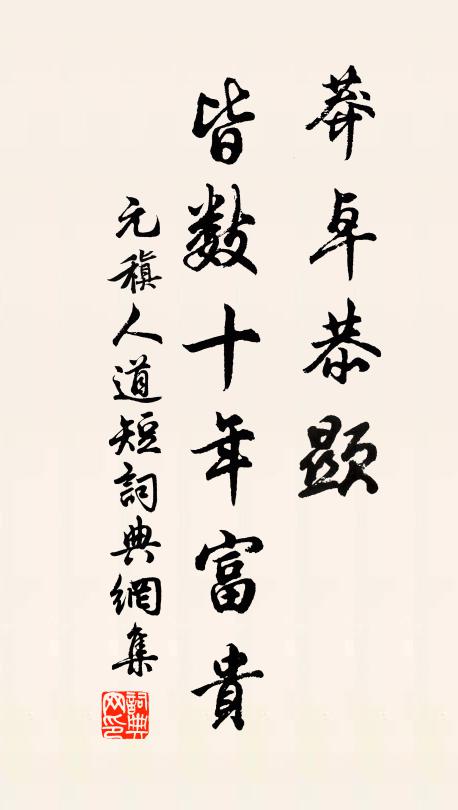 莽卓恭顯
皆数十年富貴
元稹人道短詞典網集
詞典
网印